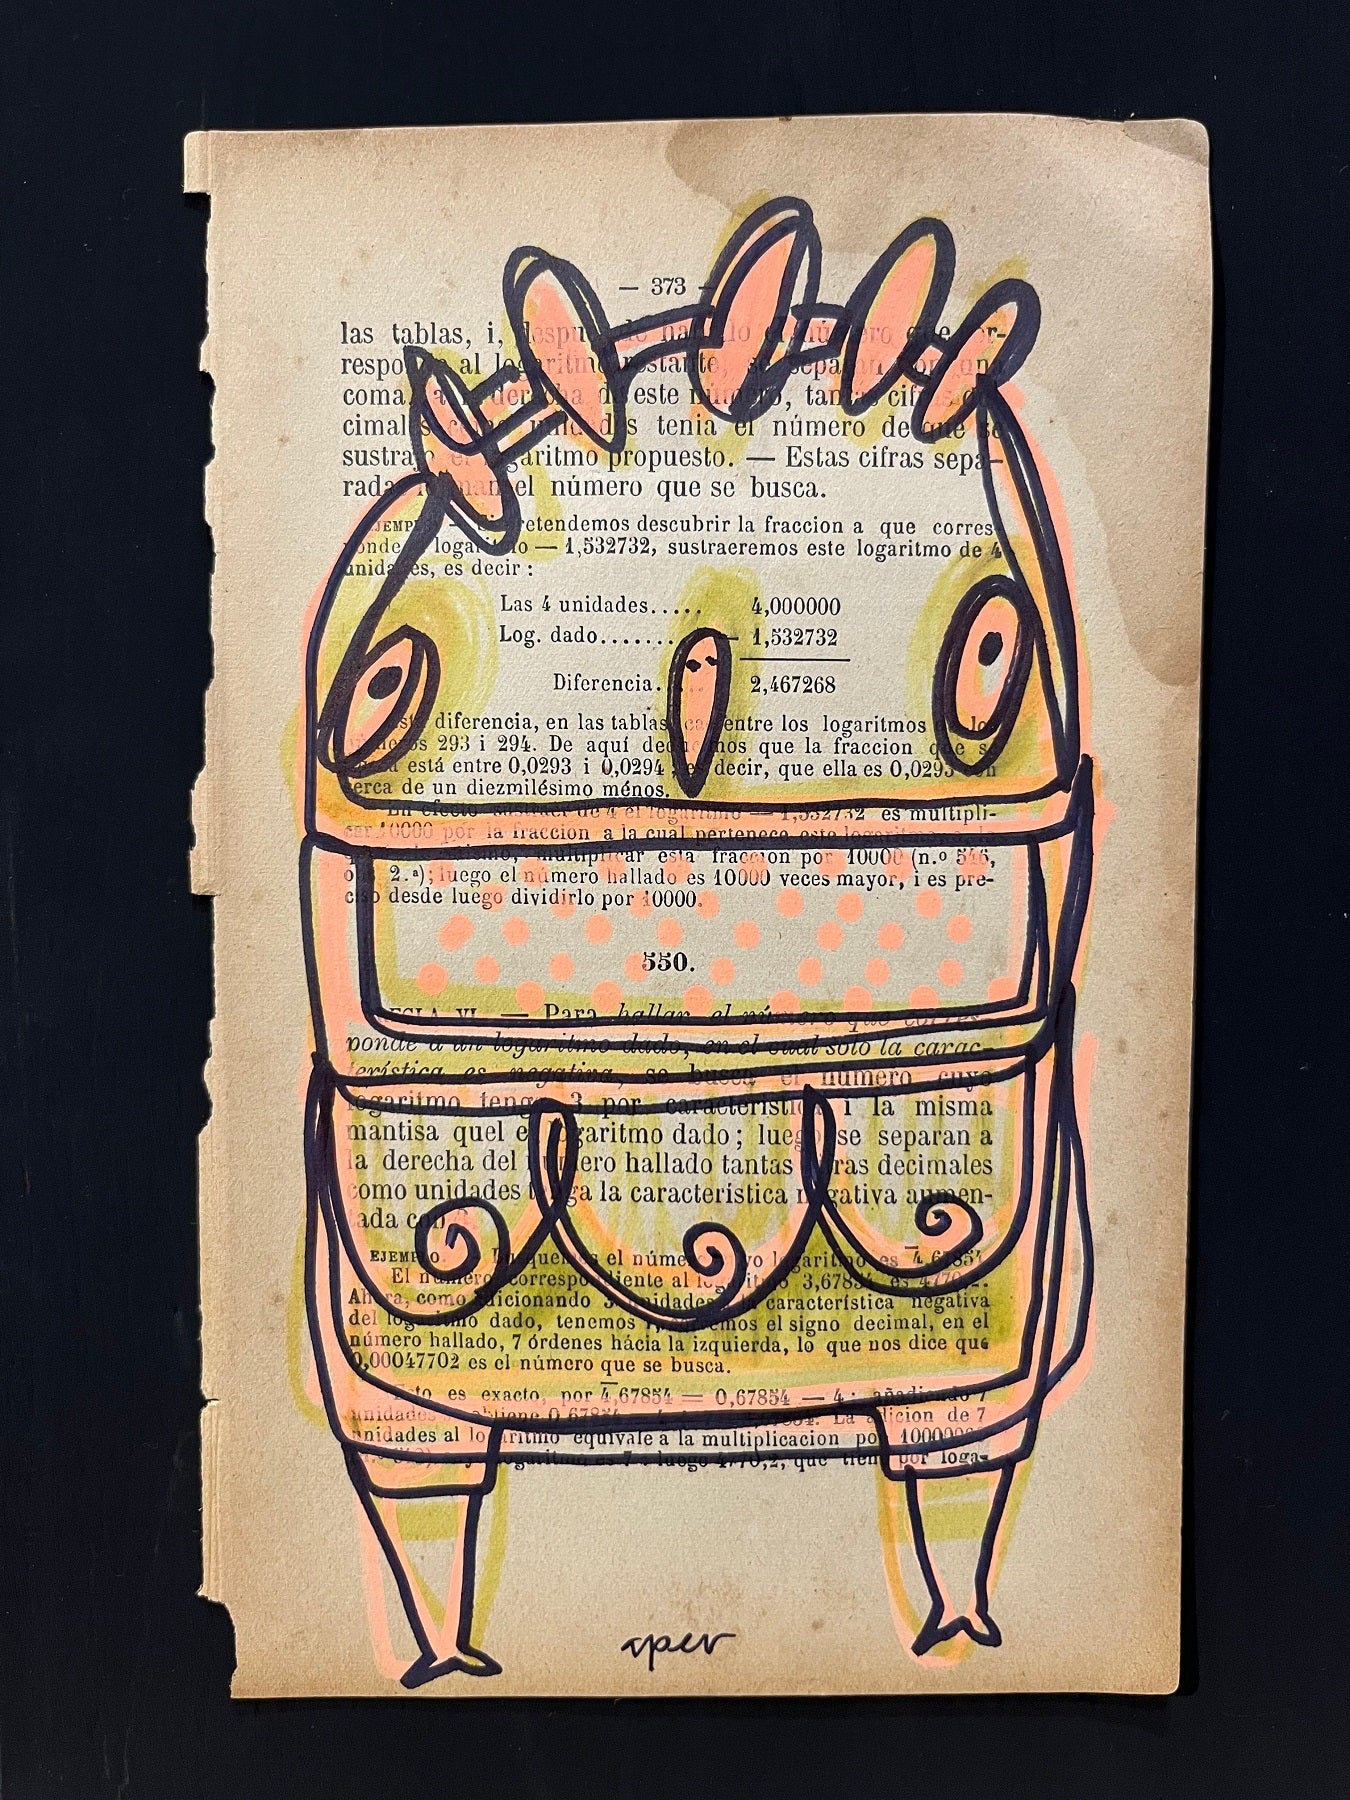 — 373 —
las tablas, i, despues de hallado el número que cor-
responde al logaritmo restante, se separan con una
coma, a la derecha de este número, tantas cifras de-
cimales como unidades tenia el número de que se
sustrajo el logaritmo propuesto. — Estas cifras sepa-
radas forman el número que se busca.
EJEMPLO. — Si pretendemos descubrir la fraccion a que corres-
ponde el logaritmo — 1,532732, sustraeremos este logaritmo de 4
unidades, es decir :
Las 4 unidades..... 4,000000
Log. dado....... — 1,532732
Diferencia.. 2,467268
Esta diferencia, en las tablas, cae entre los logaritmos de los
números 293 i 294. De aquí deducimos que la fraccion que se
busca está entre 0,0293 i 0,0294 ; es decir, que ella es 0,0293 con
cerca de un diezmilésimo ménos.
En efecto sustraer de 4 el logaritmo — 1,532732 es multipli-
car 10000 por la fraccion a la cual pertenece este logaritmo
multiplicar esta fraccion por 10000 (n.º 546,
2.ª); luego el número hallado es 10000 veces mayor, i es pre-
ciso desde luego dividirlo por 10000.
550.
REGLA VI. — Para hallar el número que corres-
ponde a un logaritmo dado, en el cual solo la carac-
terística es negativa, se busca el número cuyo
logaritmo tenga 3 por característica i la misma
mantisa quel el logaritmo dado ; luego se separan a
la derecha del número hallado tantas cifras decimales
como unidades tenga la característica negativa aumen-
tada con 3.
EJEMPLO. — Busquemos el número cuyo logaritmo es 4̅,67854
El número correspondiente al logaritmo 3,67854 es 4770,2.
Ahora, como adicionando 3 unidades a la característica negativa
del logaritmo dado, tenemos 7, corremos el signo decimal, en el
número hallado, 7 órdenes hácia la izquierda, lo que nos dice que
0,00047702 es el número que se busca.
Esto es exacto, por 4̅,67854 = 0,67854 — 4 ; añadiendo 7
unidades se obtiene 0,67854 La adicion de 7
unidades al logaritmo equivale a la multiplicacion por 10000000
logaritmo es 7 ; luego 4770,2, que tiene por loga-